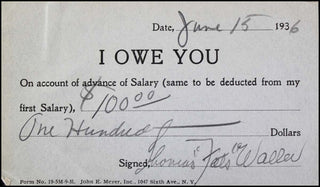 Date, June 15 1936
I OWE YOU
On account of advance of Salary (same to be deducted from my
first Salary), $100.00
One Hundred Dollars
Signed, Thomas "Fats" Waller
Form No. 19-538-9-H. John R. Meyer, Inc., 1047 Sixth Ave., N. Y.